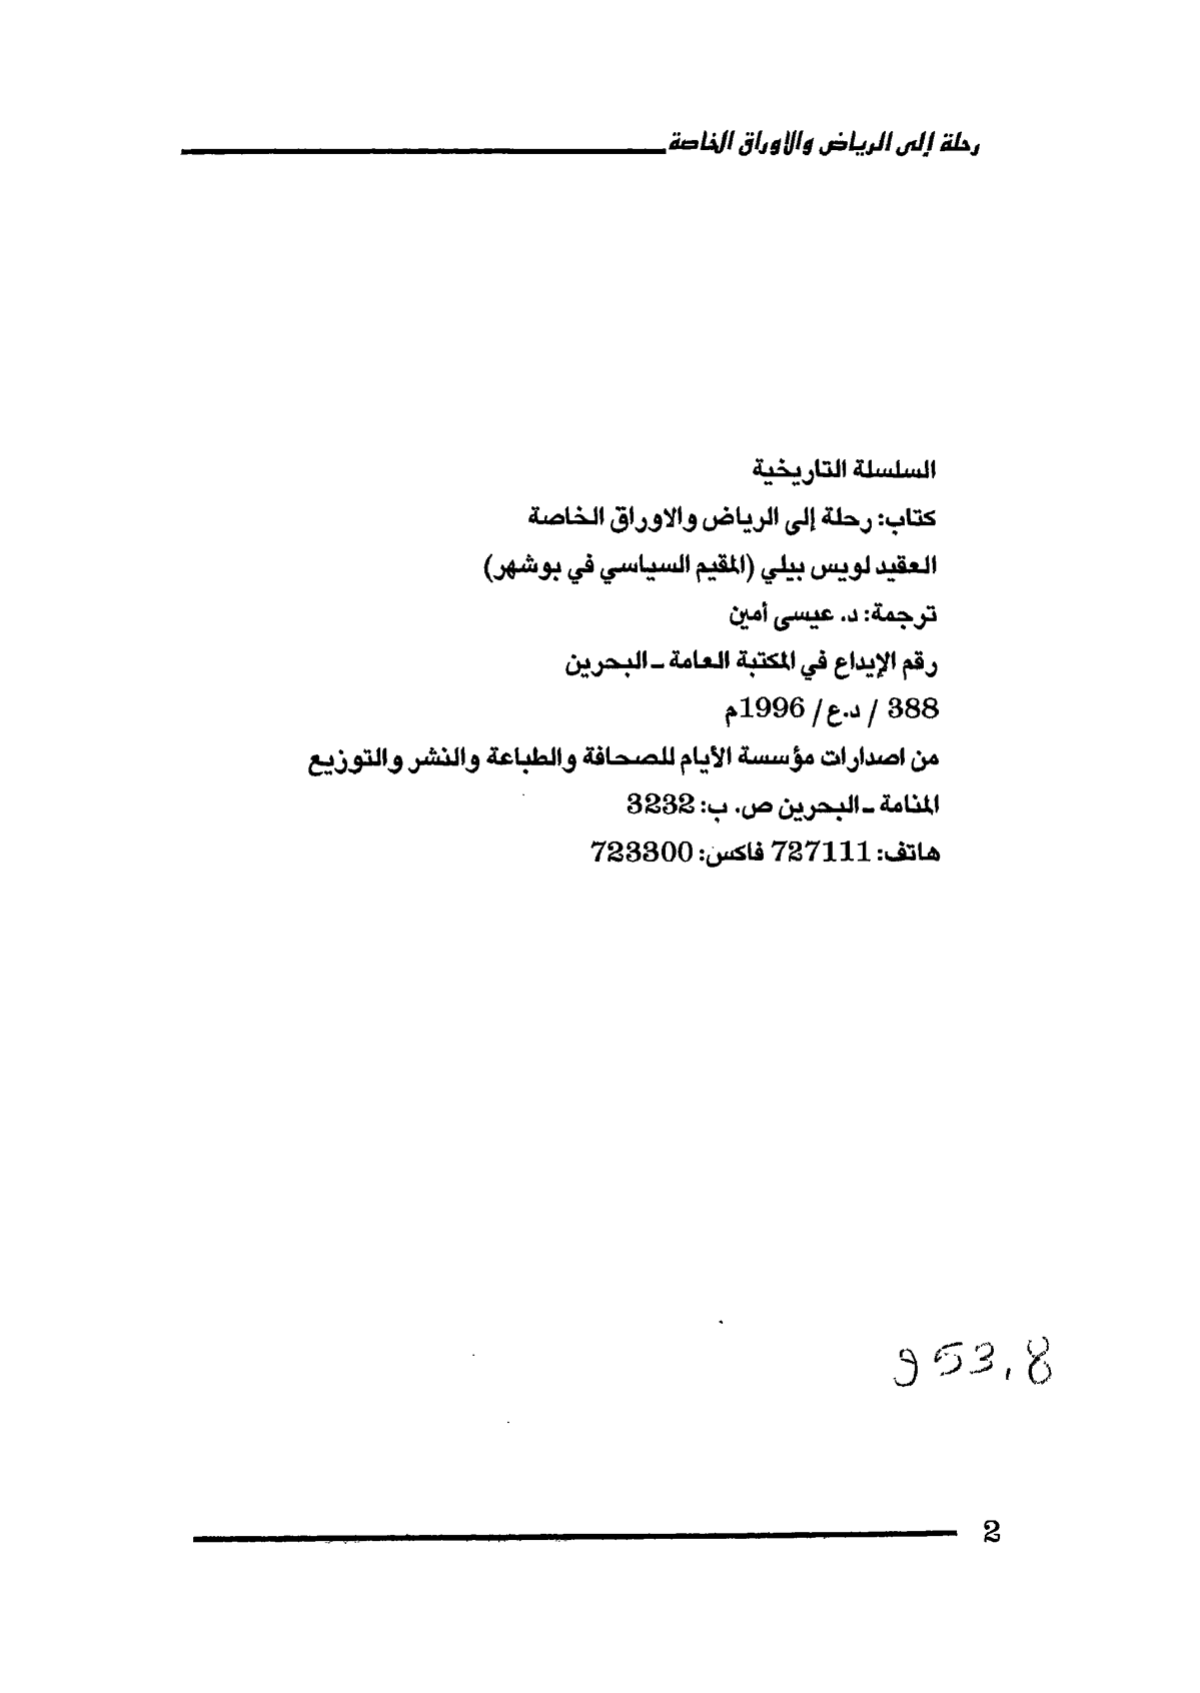 رحلة إلى الرياض والاوراق الخاصة
السلسلة التاريخية
كتاب: رحلة إلى الرياض والاوراق الخاصة
العقيد لويس بيلي (المقيم السياسي في بوشهر)
ترجمة: د. عيسى أمين
رقم الإيداع في المكتبة العامة ـ البحرين
388 / د.ع/ 1996م
من اصدارات مؤسسة الأيام للصحافة والطباعة والنشر والتوزيع
المنامة ـ البحرين ص. ب: 3232
هاتف: 727111 فاكس: 723300
953,8
2